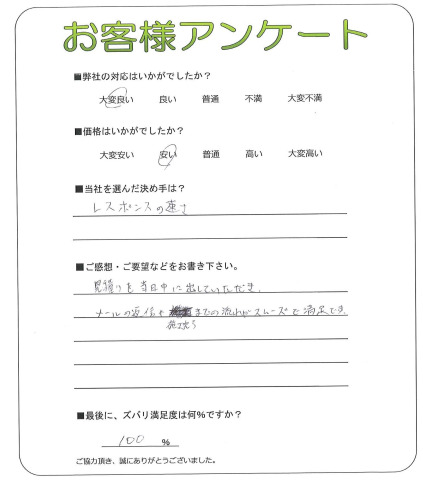 お客様アンケート
■弊社の対応はいかがでしたか？
大変良い 良い 普通 不満 大変不満
■価格はいかがでしたか？
大変安い 安い 普通 高い 大変高い
■当社を選んだ決め手は？
レスポンスの速さ
■ご感想・ご要望などをお書き下さい。
見積りを当日中に出していただき、
メールの返信や までの流れがスムーズで満足です。
■最後に、ズバリ満足度は何%ですか？
100 %
ご協力頂き、誠にありがとうございました。